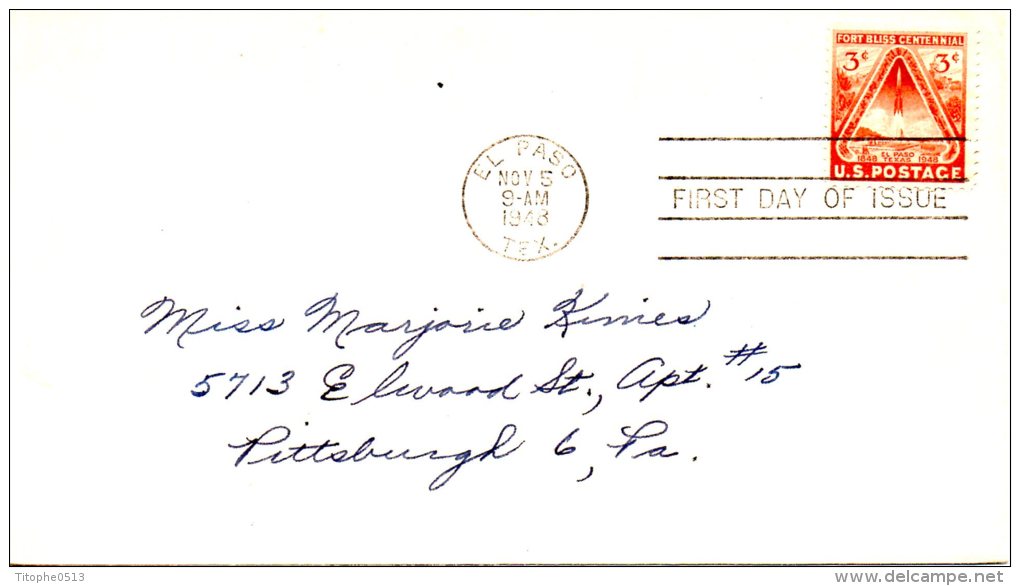 FORT BLISS CENTENNIAL
3¢ 3¢
EL PASO
1848 TEXAS 1948
U.S. POSTAGE
EL PASO
NOV 5
9-AM
1948
TEX.
FIRST DAY OF ISSUE
Miss Marjorie Kimes
5713 Elwood St., Apt. #15
Pittsburgh 6, Pa.
Titophe0513
www.delcampe.net